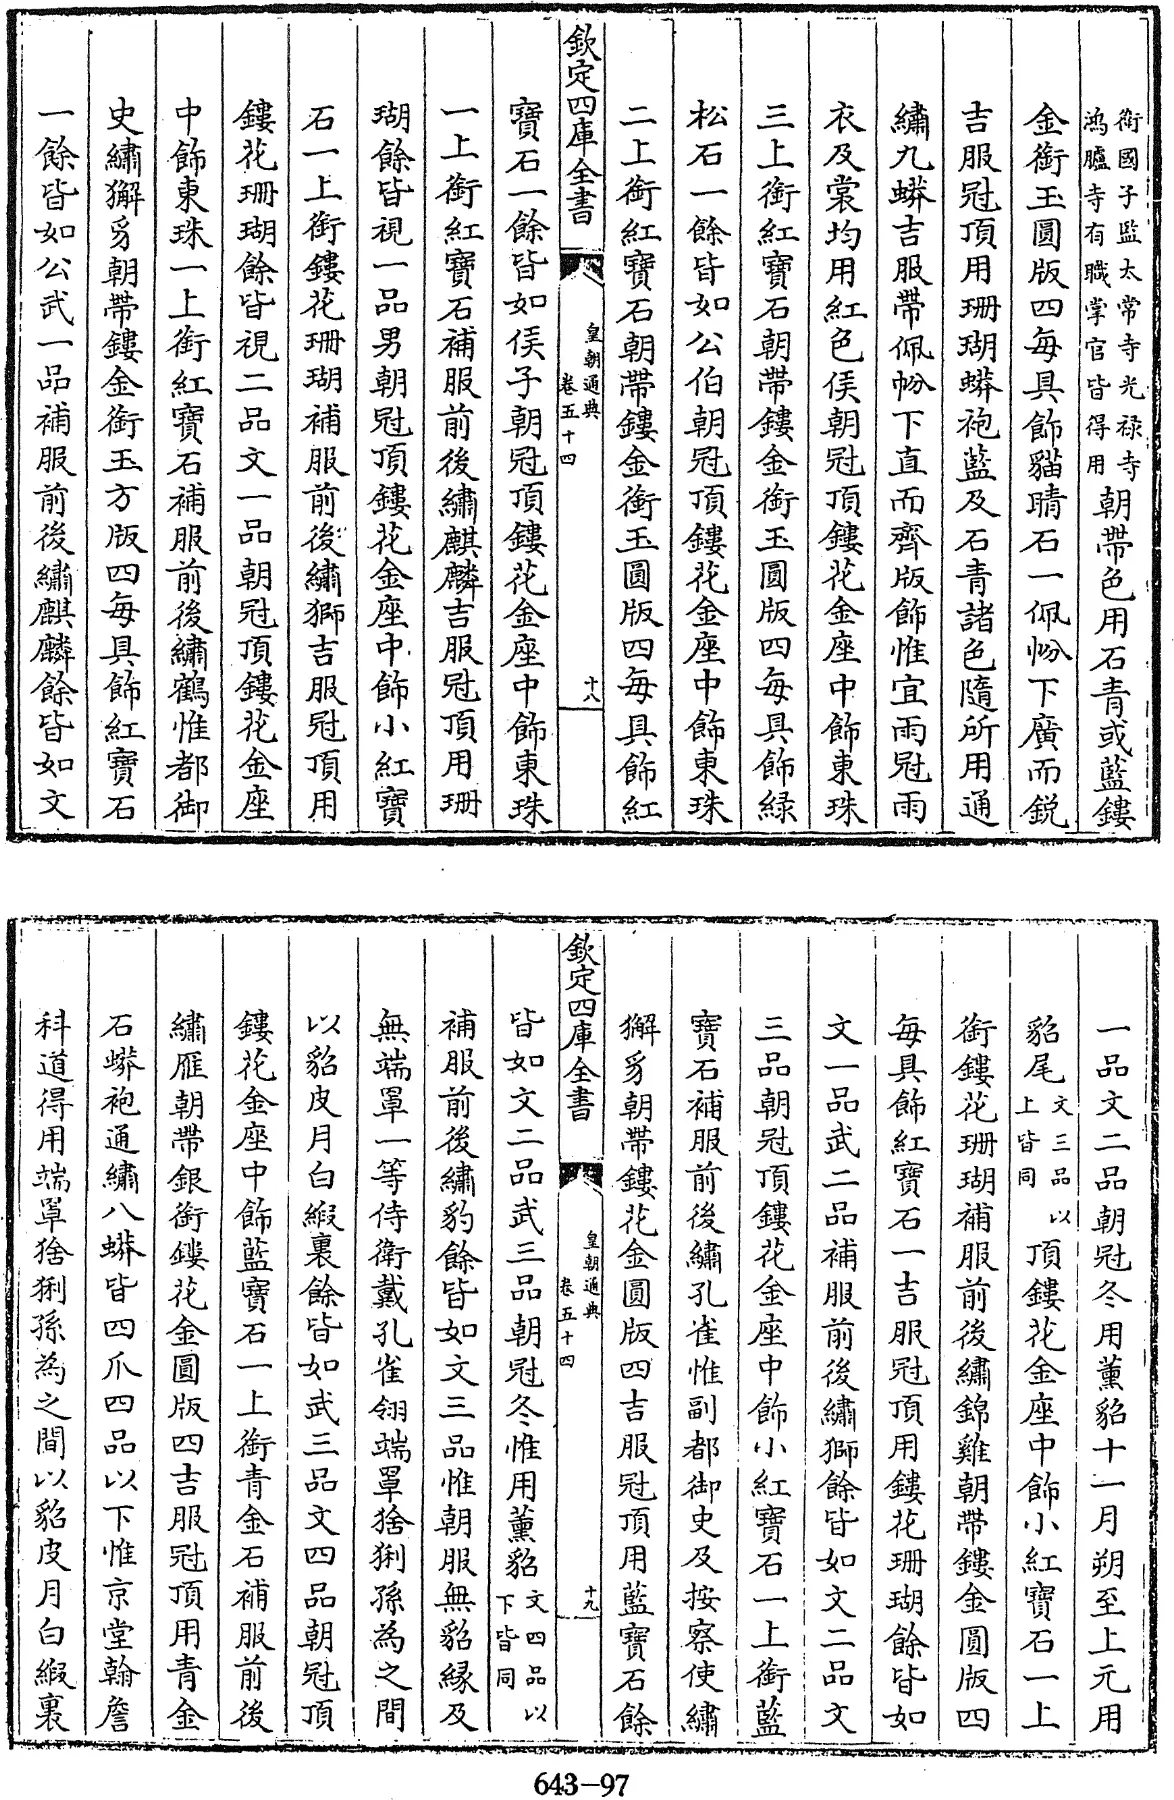 衛國子監太常寺光禄寺
鴻臚寺有職掌官皆得用
朝帶色用石青或藍鏤
金銜玉圓版四每具飾貓睛石一佩帉下廣而鋭
吉服冠頂用珊瑚蟒袍藍及石青諸色隨所用通
繡九蟒吉服帶佩帉下直而齊版飾惟宜雨冠雨
衣及裳均用紅色侯朝冠頂鏤花金座中飾東珠
三上銜紅寶石朝帶鏤金銜玉圓版四每具飾緑
松石一餘皆如公伯朝冠頂鏤花金座中飾東珠
二上銜紅寶石朝帶鏤金銜玉圓版四每具飾紅
欽定四庫全書
皇朝通典
卷五十四
十八
寶石一餘皆如侯子朝冠頂鏤花金座中飾東珠
一上銜紅寶石補服前後繡麒麟吉服冠頂用珊
瑚餘皆視一品男朝冠頂鏤花金座中飾小紅寶
石一上銜鏤花珊瑚補服前後繡獅吉服冠頂用
鏤花珊瑚餘皆視二品文一品朝冠頂鏤花金座
中飾東珠一上銜紅寶石補服前後繡鶴惟都御
史繡獬豸朝帶鏤金銜玉方版四每具飾紅寶石
一餘皆如公武一品補服前後繡麒麟餘皆如文
一品文二品朝冠冬用薰貂十一月朔至上元用
貂尾
文三品以
上皆同
頂鏤花金座中飾小紅寶石一上
銜鏤花珊瑚補服前後繡錦雞朝帶鏤金圓版四
每具飾紅寶石一吉服冠頂用鏤花珊瑚餘皆如
文一品武二品補服前後繡獅餘皆如文二品文
三品朝冠頂鏤花金座中飾小紅寶石一上銜藍
寶石補服前後繡孔雀惟副都御史及按察使繡
獬豸朝帶鏤花金圓版四吉服冠頂用藍寶石餘
欽定四庫全書
皇朝通典
卷五十四
十九
皆如文二品武三品朝冠冬惟用薰貂
文四品以
下皆同
補服前後繡豹餘皆如文三品惟朝服無貂縁及
無端罩一等侍衛戴孔雀翎端罩猞猁孫為之間
以貂皮月白緞裏餘皆如武三品文四品朝冠頂
鏤花金座中飾藍寶石一上銜青金石補服前後
繡雁朝帶銀銜鏤花金圓版四吉服冠頂用青金
石蟒袍通繡八蟒皆四爪四品以下惟京堂翰詹
科道得用端罩猞猁孫為之間以貂皮月白緞裏
643-97